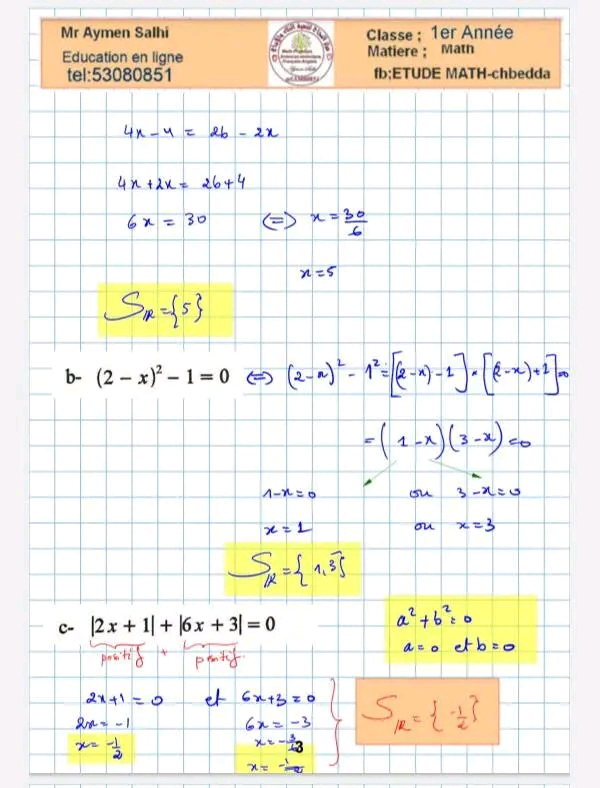 Mr Aymen Salhi
Education en ligne
tel:53080851
Classe ; 1er Année
Matiere ; Math
fb;ETUDE MATH-chbedda
4x - 4 = 26 - 2x
4x + 2x = 26 + 4
6x = 30 ⟺ x = 30/6
x = 5
S_IR = {5}
b- (2 − x)² − 1 = 0 ⟺ (2-x)² - 1² = [(2-x) - 1] × [(2-x) + 1] = 0
= (1-x)(3-x) = 0
1-x = 0 ou 3-x = 0
x = 1 ou x = 3
S_IR = {1,3}
c- |2x + 1| + |6x + 3| = 0
positif + positif
a² + b² = 0
a = 0 et b = 0
2x+1 = 0 et 6x+3 = 0
2x = -1 6x = -3
x = -1/2 x = -3/6
x = -1/2
S_IR = {-1/2}
3